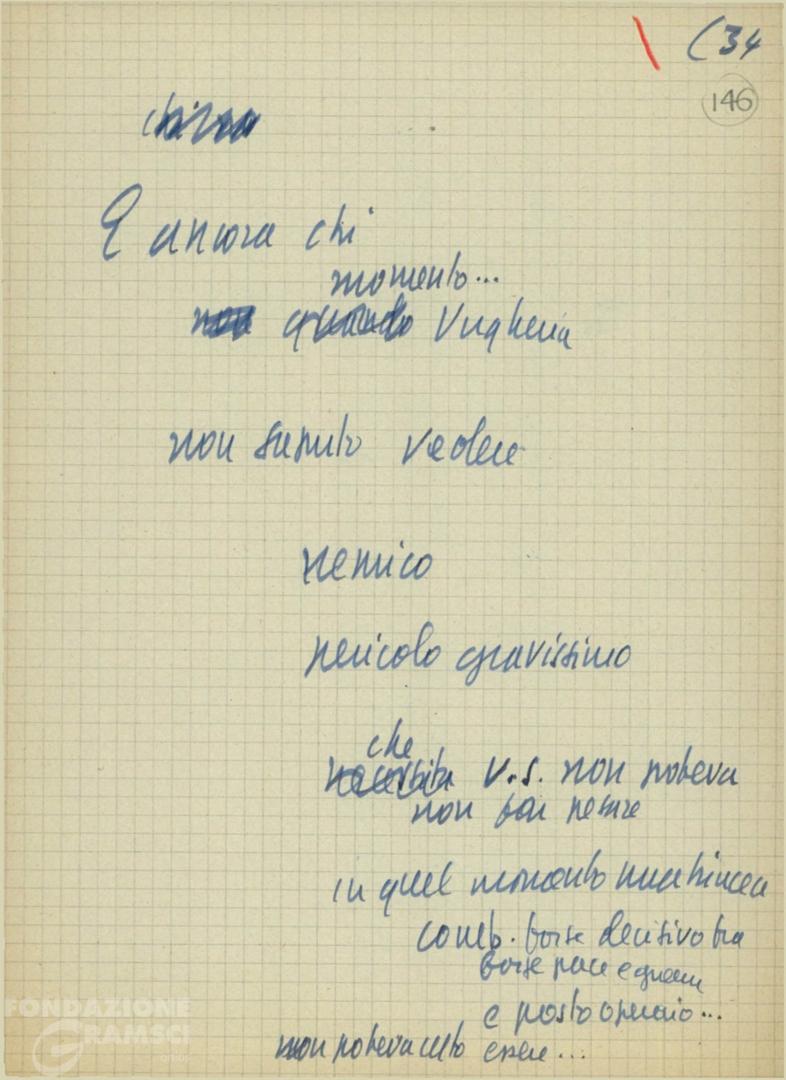 (34
146
E ancora chi
momento...
non quando Ungheria
non saputo vedere
nemico
pericolo gravissimo
che
necessità U.S. non poteva
non far pesare
in quel momento una trincea
comb. forse decisivo tra
forze pace e guerra
e posto operaio...
non poteva certo essere...
FONDAZIONE
GRAMSCI